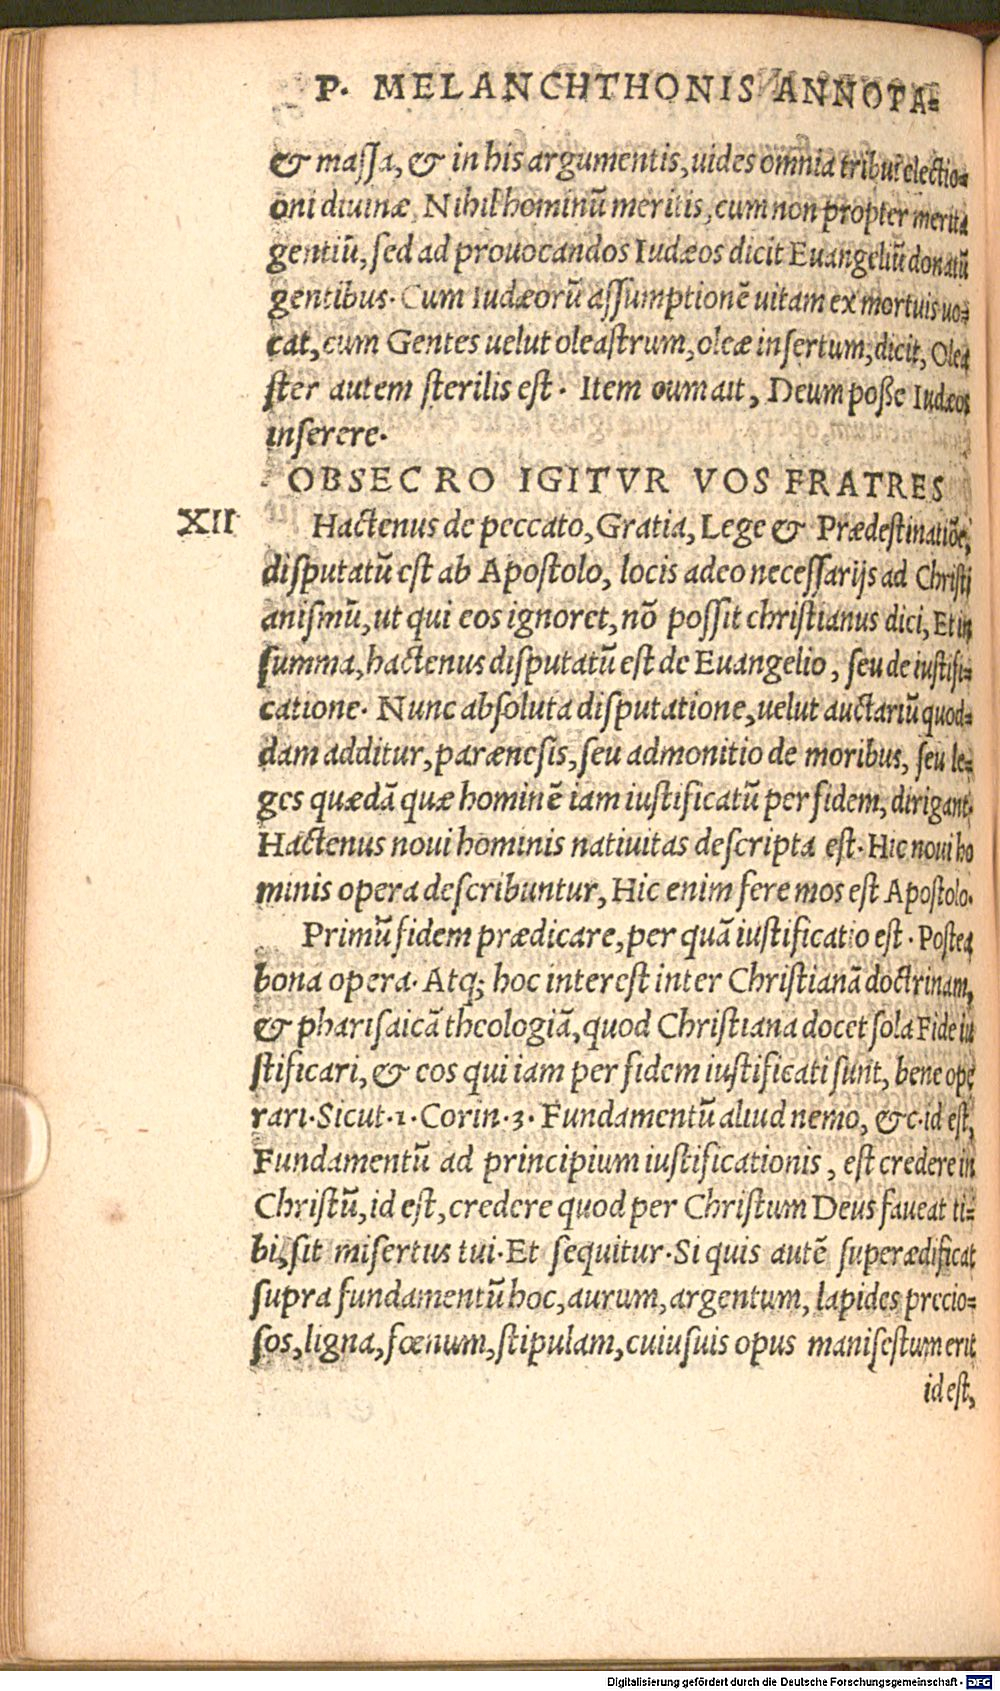 P. MELANCHTHONIS ANNOTA-
& massa, & in his argumentis, uides omnia tribui electio-
oni diuinæ. Nihil hominũ meritis, cum non propter merita
gentiũ, sed ad prouocandos Iudæos dicit Euangeliũ donatũ
gentibus. Cum Iudæorũ assumptionẽ uitam ex mortuis uo-
cat, cum Gentes uelut oleastrum, oleæ insertum, dicit, Olea
ster autem sterilis est. Item cum ait, Deum posse Iudæos
inserere.
OBSECRO IGITVR VOS FRATRES
XII Hactenus de peccato, Gratia, Lege & Prædestinatiõe,
disputatũ est ab Apostolo, locis adeo necessarijs ad Christi
anismũ, ut qui eos ignoret, nõ possit christianus dici, Et in
summa, hactenus disputatũ est de Euangelio, seu de iustifi-
catione. Nunc absoluta disputatione, uelut auctariũ quod-
dam additur, parænesis, seu admonitio de moribus, seu le-
ges quædã quæ hominẽ iam iustificatũ per fidem, dirigant.
Hactenus noui hominis natiuitas descripta est. Hic noui ho
minis opera describuntur, Hic enim fere mos est Apostolo.
Primũ fidem prædicare, per quã iustificatio est. Postea
bona opera. Atq; hoc interest inter Christianã doctrinam,
& pharisaicã theologiã, quod Christiana docet sola Fide iu
stificari, & eos qui iam per fidem iustificati sunt, bene ope
rari. Sicut. 1. Corin. 3. Fundamentũ aliud nemo, &c. id est,
Fundamentũ ad principium iustificationis, est credere in
Christũ, id est, credere quod per Christum Deus faueat ti-
bi, sit misertus tui. Et sequitur. Si quis autẽ superædificat
supra fundamentũ hoc, aurum, argentum, lapides precio-
sos, ligna, fœnum, stipulam, cuiusuis opus manifestum erit
id est,
Digitalisierung gefördert durch die Deutsche Forschungsgemeinschaft - DFG